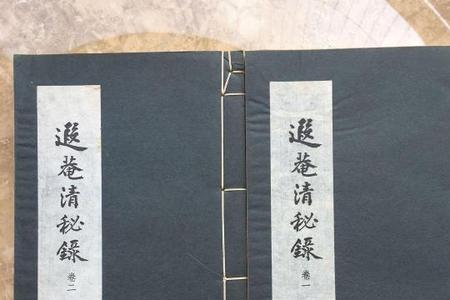 遐菴清秘錄 卷一
遐菴清秘錄 卷二